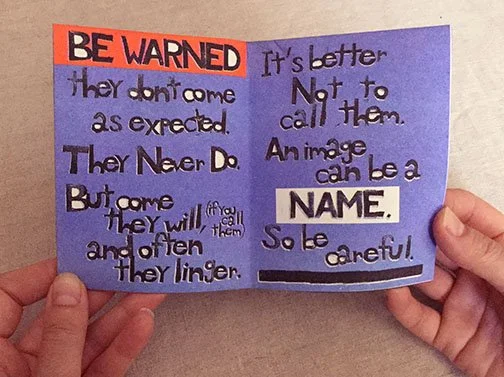 BE WARNED
they don't come
as expected.
They Never Do.
But come
they will, (if you call them)
and often
they linger.
It's better
Not to
call them.
An image
can be a
NAME.
So be
careful.